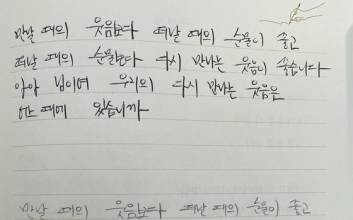 만날 때의 웃음보다 떠날 때의 눈물이 좋고
떠날 때의 눈물보다 다시 만나는 웃음이 좋습니다
아아 님이여 우리의 다시 만나는 웃음은
어느 때에 있습니까
만날 때의 웃음보다 떠날 때의 눈물이 좋고